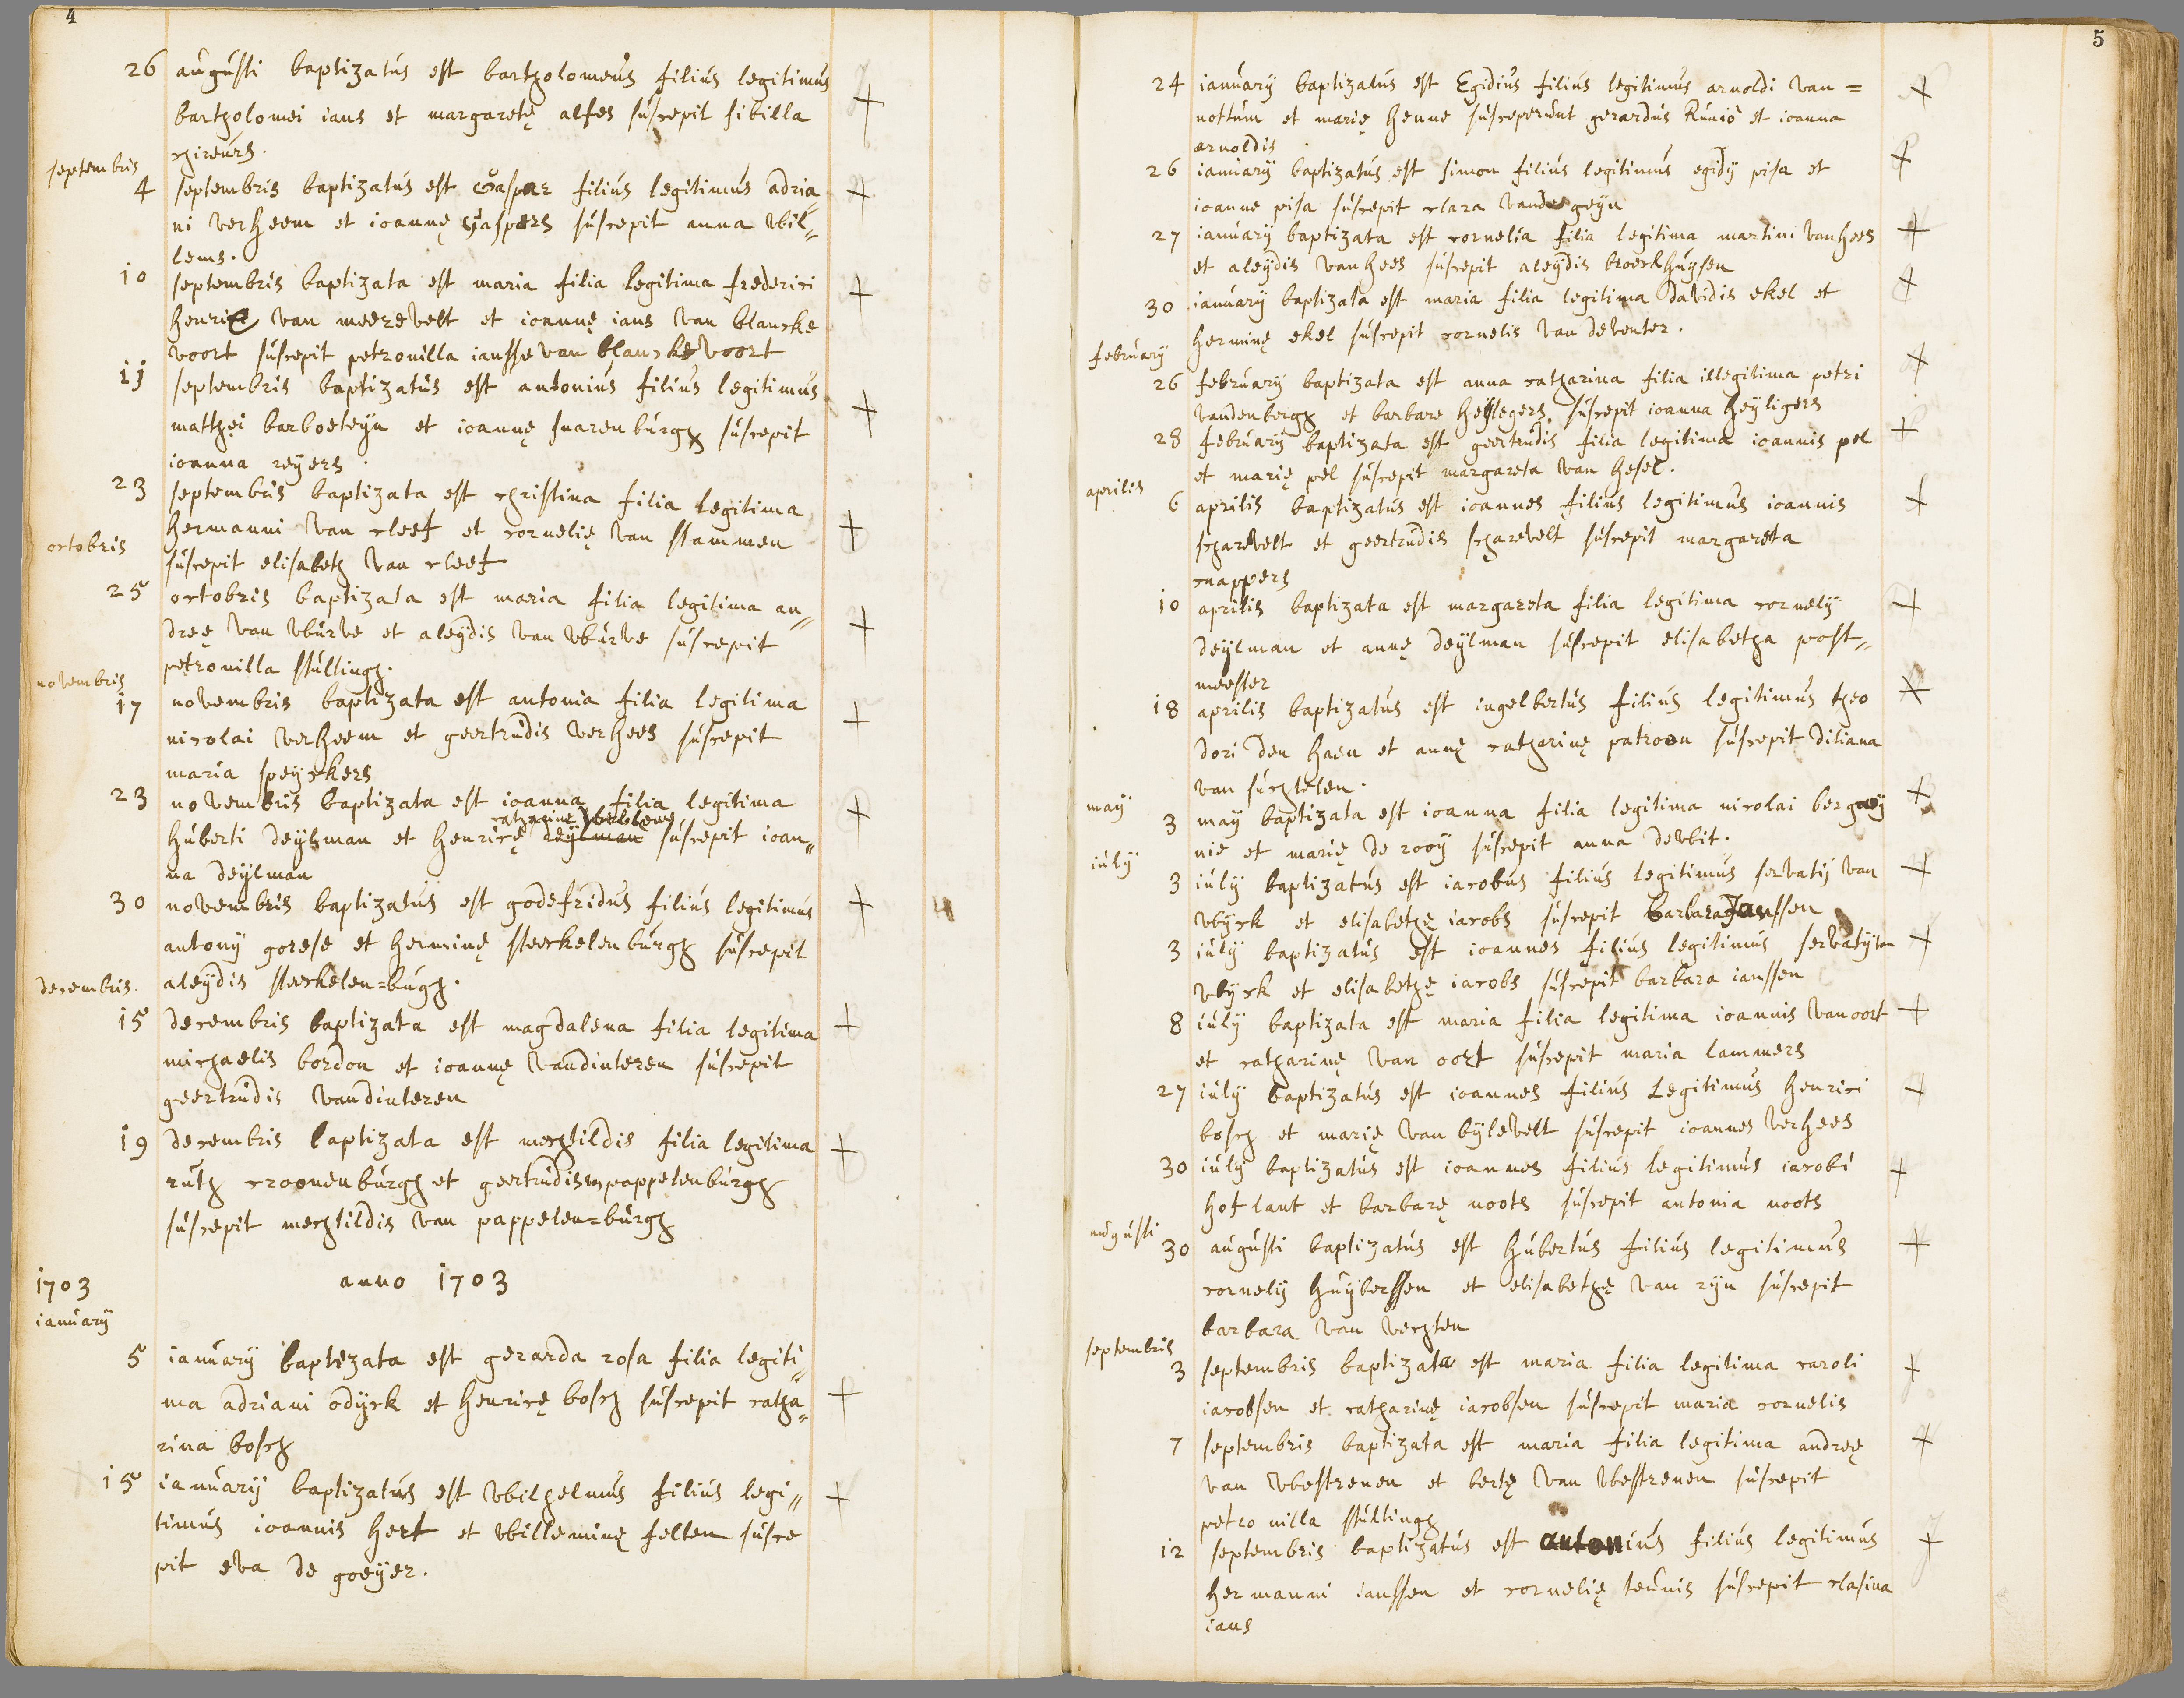 4
26 augusti baptizatus est bartholomeus filius legitimus
bartholomei ians et margaretę alfes suscepit sibilla
chireurs.
septembris
4 septembris baptizatus est Gaspar filius legitimus adria„
ni verheem et ioannę Gaspers suscepit anna wil„
lems.
10 septembris baptizata est maria filia legitima frederici
henrici van meerevelt et ioannę ians van blancke
voort suscepit petronilla iansse van blanckevoort
11 septembris baptizatus est antonius filius legitimus
matthęi barboeteyn et ioannę snarenburgh suscepit
ioanna reyers.
23 septembris baptizata est christina filia legitima
hermanni van cleef et cornelię van stammen
octobris
suscepit elisabeth van cleef
25 octobris baptizata est maria filia legitima an„
dreę van wurve et aleydis van wurve suscepit
petronilla stultingh.
novembris
17 novembris baptizata est antonia filia legitima
nicolai verheem et geertrudis verhees suscepit
maria speyckers
23 novembris baptizata est ioanna filia legitima
catharinę willems
huberti deylman et henricę deylman suscepit ioan„
na deylman
30 novembris baptizatus est godefridus filius legitimus
antony gorese et herminę sterckelenburgh suscepit
aleydis sterckelen=bugh.
decembris
15 decembris baptizata est magdalena filia legitima
michaelis bordon et ioannę vandinteren suscepit
geertrudis vandinteren
19 decembris baptizata est mechtildis filia legitima
ruth croonenburgh et geertrudis van pappelenburgh
suscepit mechtildis van pappelen=burgh
1703 anno 1703
ianuary
5 ianuary baptizata est gerarda rosa filia legiti„
ma adriani odyck et henricę bosch suscepit catha„
rina bosch
15 ianuary baptizatus est wilhelmus filius legi„
timus ioannis hert et willeminę felten susce
pit eva de goeyer.
5
24 ianuary baptizatus est Egidius filius legitimus arnoldi van=
nottum et marię henne susceperunt gerardus Runio et ioanna
arnoldis
26 ianuary baptizatus est simon filius legitimus egidy pisa et
ioanne pisa suscepit clara vandergeyn
27 ianuary baptizata est cornelia filia legitima martini vanhees
et aleydis vanhees suscepit aleydis broeckhuysen
30 ianuary baptizata est maria filia legitima davidis ekel et
herminę ekel suscepit cornelis van deventer.
february
26 february baptizata est anna catharina filia illegitima petri
vandenbergh et barbare heylegers suscepit ioanna heyligers
28 february baptizata est geertrudis filia legitima ioannis pel
et marię pel suscepit margareta van hesel.
aprilis
6 aprilis baptizatus est ioannes filius legitimus ioannis
scharevelt et geertrudis scharevelt suscepit margareta
cnappers
10 aprilis baptizata est margareta filia legitima cornely
deylman et annę deylman suscepit elisabetha post„
meester
18 aprilis baptizatus est ingelbertus filius legitimus theo
dori den haen et annę catharinę patroen suscepit diliana
van suchtelen.
may
3 may baptizata est ioanna filia legitima nicolai bergaey
nie et marię de rooy suscepit anna dewit.
iuly
3 iuly baptizatus est iacobus filius legitimus servatij van
wyck et elisabethę iacobs suscepit barbara Janssen
3 iuly baptizatus est ioannes filius legitimus servatij van
wyck et elisabethę iacobs suscepit barbara ianssen
8 iuly baptizata est maria filia legitima ioannis van oort
et catharinę van oort suscepit maria lammers
27 iuly baptizatus est ioannes filius Legitimus henrici
bosch et marię van bylevelt suscepit ioannes verhees
30 iuly baptizatus est ioannes filius legitimus iacobi
hoflant et barbarę noots suscepit antonia noots
augusti
30 augusti baptizatus est hubertus filius legitimus
cornely huyberssen et elisabethę van ryn suscepit
barbara van vechten
septembris
3 septembris baptizata est maria filia legitima caroli
iacobsen et catharinę iacobsen suscepit maria cornelis
7 septembris baptizata est maria filia legitima andreę
van westrenen et bertę van westrenen suscepit
petronilla stultingh
12 septembris baptizatus est antonius filius legitimus
hermanni ianssen et cornelię teunis suscepit clasina
ians